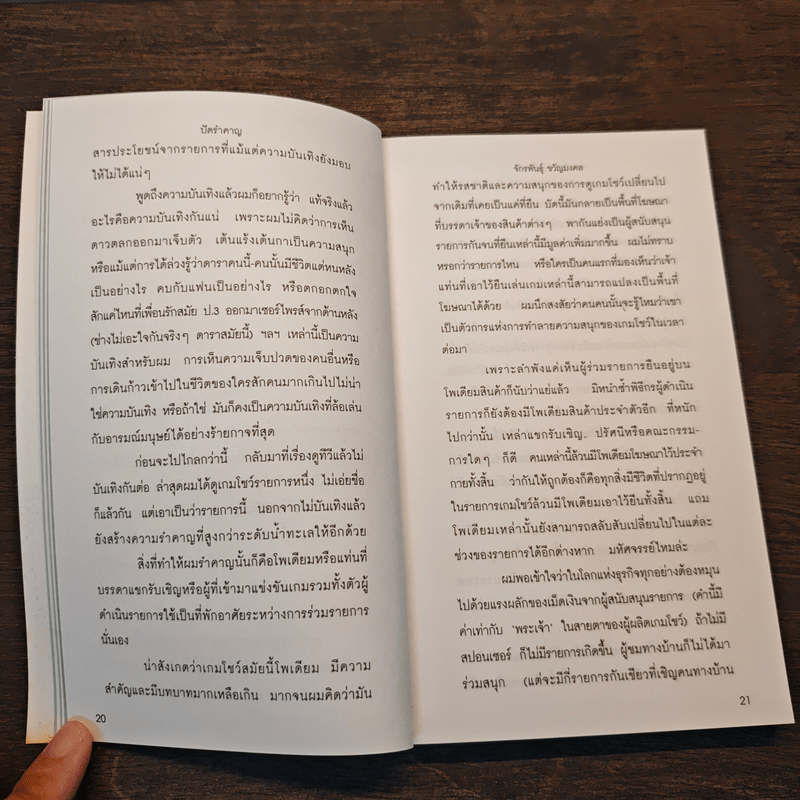 ปัดรำคาญ
สารประโยชน์จากรายการที่แม้แต่ความบันเทิงยังมอบ
ให้ไม่ได้แน่ๆ
พูดถึงความบันเทิงแล้วผมก็อยากรู้ว่า แท้จริงแล้ว
อะไรคือความบันเทิงกันแน่ เพราะผมไม่คิดว่าการเห็น
ดาวตลกออกมาเจ็บตัว เต้นแร้งเต้นกาเป็นความสนุก
หรือแม้แต่การได้ล่วงรู้ว่าดาราคนนี้-คนนั้นมีชีวิตแต่หนหลัง
เป็นอย่างไร คบกับแฟนเป็นอย่างไร หรือตกอกตกใจ
สักแค่ไหนที่เพื่อนรักสมัย ป.3 ออกมาเซอร์ไพรส์จากด้านหลัง
(ช่างไม่เอะใจกันจริงๆ ดาราสมัยนี้) ฯลฯ เหล่านี้เป็นความ
บันเทิงสำหรับผม การเห็นความเจ็บปวดของคนอื่นหรือ
การเดินก้าวเข้าไปในชีวิตของใครสักคนมากเกินไปไม่น่า
ใช่ความบันเทิง หรือถ้าใช่ มันก็คงเป็นความบันเทิงที่ล้อเล่น
กับอารมณ์มนุษย์ได้อย่างร้ายกาจที่สุด
ก่อนจะไปไกลกว่านี้ กลับมาที่เรื่องดูทีวีแล้วไม่
บันเทิงกันต่อ ล่าสุดผมได้ดูเกมโชว์รายการหนึ่ง ไม่เอ่ยชื่อ
ก็แล้วกัน แต่เอาเป็นว่ารายการนี้ นอกจากไม่บันเทิงแล้ว
ยังสร้างความรำคาญที่สูงกว่าระดับน้ำทะเลให้อีกด้วย
สิ่งที่ทำให้ผมรำคาญนั้นก็คือโพเดียมหรือแท่นที่
บรรดาแขกรับเชิญหรือผู้ที่เข้ามาแข่งขันเกมรวมทั้งตัวผู้
ดำเนินรายการใช้เป็นที่พักอาศัยระหว่างการร่วมรายการ
นั่นเอง
น่าสังเกตว่าเกมโชว์สมัยนี้โพเดียม มีความ
สำคัญและมีบทบาทมากเหลือเกิน มากจนผมคิดว่ามัน
20
จักรพันธุ์ ขวัญมงคล
ทำให้รสชาติและความสนุกของการดูเกมโชว์เปลี่ยนไป
จากเดิมที่เคยเป็นแค่ที่ยืน บัดนี้มันกลายเป็นพื้นที่โฆษณา
ที่บรรดาเจ้าของสินค้าต่างๆ พากันแย่งเป็นผู้สนับสนุน
รายการกันจนที่ยืนเหล่านี้มีมูลค่าเพิ่มมากขึ้น ผมไม่ทราบ
หรอกว่ารายการไหน หรือใครเป็นคนแรกที่มองเห็นว่าเจ้า
แท่นที่เอาไว้ยืนเล่นเกมเหล่านี้สามารถแปลงเป็นพื้นที่
โฆษณาได้ด้วย ผมนึกสงสัยว่าคนคนนั้นจะรู้ไหมว่าเขา
เป็นตัวการแห่งการทำลายความสนุกของเกมโชว์ในเวลา
ต่อมา
เพราะลำพังแค่เห็นผู้ร่วมรายการยืนอยู่บน
โพเดียมสินค้าก็นับว่าแย่แล้ว มิหนำซ้ำพิธีกรผู้ดำเนิน
รายการก็ยังต้องมีโพเดียมสินค้าประจำตัวอีก ที่หนัก
ไปกว่านั้น เหล่าแขกรับเชิญ. ปรัศนีหรือคณะกรรม-
การใดๆ ก็ดี คนเหล่านี้ล้วนมีโพเดียมโฆษณาไว้ประจำ
กายทั้งสิ้น ว่ากันให้ถูกต้องก็คือทุกสิ่งมีชีวิตที่ปรากฏอยู่
ในรายการเกมโชว์ล้วนมีโพเดียมเอาไว้ยืนทั้งสิ้น แถม
โพเดียมเหล่านั้นยังสามารถสลับสับเปลี่ยนไปในแต่ละ
ช่วงของรายการได้อีกต่างหาก มหัศจรรย์ไหมล่ะ
ผมพอเข้าใจว่าในโลกแห่งธุรกิจทุกอย่างต้องหมุน
ไปด้วยแรงผลักของเม็ดเงินจากผู้สนับสนุนรายการ (คำนี้มี
ค่าเท่ากับ 'พระเจ้า' ในสายตาของผู้ผลิตเกมโชว์) ถ้าไม่มี
สปอนเซอร์ ก็ไม่มีรายการเกิดขึ้น ผู้ชมทางบ้านก็ไม่ได้มา
ร่วมสนุก (แต่จะมีกี่รายการกันเชียวที่เชิญคนทางบ้าน
21